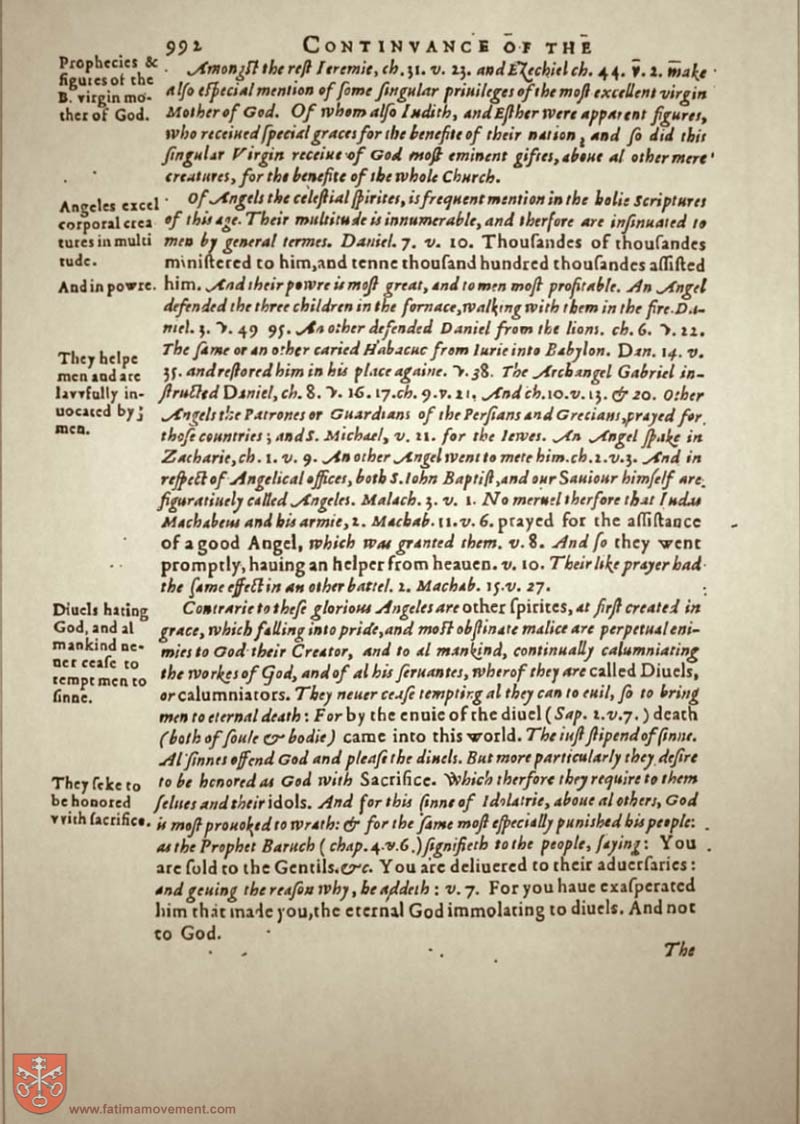 992
CONTINVANCE OF THE
Prophecies &
figures of the
B. virgin mo-
ther of God.
Amongſt the reſt Ieremie, ch. 31. v. 23. and Ezechiel ch. 44. v. 2. make
alſo eſpecial mention of ſome ſingular priuileges of the moſt excellent virgin
Mother of God. Of whom alſo Iudith, and Eſther were apparent figures,
who receiued ſpecial graces for the benefite of their nation; and ſo did this
ſingular Virgin receiue of God moſt eminent giftes, aboue al other mere
creatures, for the benefite of the whole Church.
Angeles excel
corporal crea
tures in multi
tude.
And in powre.
Of Angels the celeſtial ſpirites, is frequent mention in the holie Scriptures
of this age. Their multitude is innumerable, and therfore are inſinuated to
men by general termes. Daniel. 7. v. 10. Thouſandes of thouſandes
miniſtered to him, and tenne thouſand hundred thouſandes aſſiſted
him. And their powre is moſt great, and to men moſt profitable. An Angel
defended the three children in the fornace, walking with them in the fire. Da-
niel. 3. v. 49 95. An other defended Daniel from the lions. ch. 6. v. 22.
They helpe
men and are
lavvfully in-
uocated by
men.
The ſame or an other caried Habacuc from Iurie into Babylon. Dan. 14. v.
35. and reſtored him in his place againe. v. 38. The Archangel Gabriel in-
ſtructed Daniel, ch. 8. v. 16. 17. ch. 9. v. 21. And ch. 10. v. 13. & 20. Other
Angels the Patrones or Guardians of the Perſians and Grecians, prayed for
thoſe countries; and S. Michael, v. 21. for the Iewes. An Angel ſpake in
Zacharie, ch. 1. v. 9. An other Angel went to mete him. ch. 2. v. 3. And in
reſpect of Angelical offices, both S. Iohn Baptiſt, and our Sauiour himſelf are
figuratiuely called Angeles. Malach. 3. v. 1. No meruel therfore that Iudas
Machabeus and his armie, 2. Machab. 11. v. 6. prayed for the aſſiſtance
of a good Angel, which was granted them. v. 8. And ſo they went
promptly, hauing an helper from heauen. v. 10. Their like prayer had
the ſame effect in an other battel. 2. Machab. 15. v. 27.
Diuels hating
God, and al
mankind ne-
uer ceaſe to
tempt men to
ſinne.
Contrarie to theſe glorious Angeles are other ſpirites, at firſt created in
grace, which falling into pride, and moſt obſtinate malice are perpetual eni-
mies to God their Creator, and to al mankind, continually calumniating
the workes of God, and of al his ſeruantes, wherof they are called Diuels,
or calumniators. They neuer ceaſe tempting al they can to euil, ſo to bring
men to eternal death: For by the enuie of the diuel (Sap. 2. v. 7.) death
(both of ſoule & bodie) came into this world. The iuſt ſtipend of ſinne.
Al ſinnes offend God and pleaſe the diuels. But more particularly they deſire
They ſeke to
be honored
vvith ſacrifice.
to be honored as God with Sacrifice. Which therfore they require to them
ſelues and their idols. And for this ſinne of Idolatrie, aboue al others, God
is moſt prouoked to wrath: & for the ſame moſt eſpecially punished his people:
as the Prophet Baruch (chap. 4. v. 6.) ſignifieth to the people, ſaying: You
are ſold to the Gentils. &c. You are deliuered to their aduerſaries:
and geuing the reaſon why, he addeth: v. 7. For you haue exaſperated
him that made you, the eternal God immolating to diuels. And not
to God.
The
www.fatimamovement.com